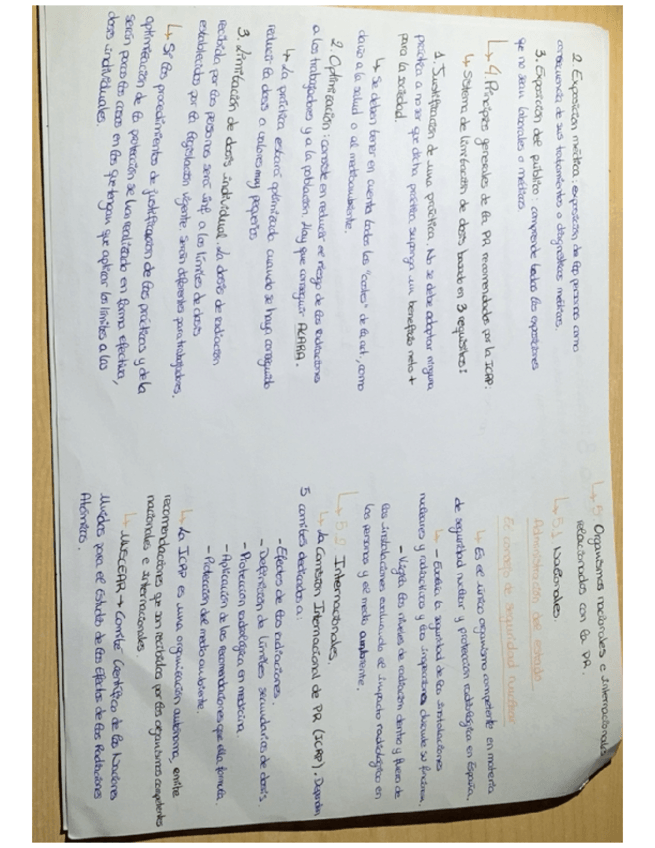 2. Exposición médica: exposición de las personas como
consecuencia de sus tratamientos o diagnósticos médicos.
3. Exposición del público: comprende todas las exposiciones
que no sean laborales o médicas
↳ 4. Principios generales de la PR recomendados por la ICRP.
↳ Sistema de limitación de dosis basado en 3 requisitos:
1. Justificación de una práctica. No se debe adoptar ninguna
práctica a no ser que dicha práctica suponga un beneficio neto +
para la sociedad.
↳ Se deben tener en cuenta todos los "costes" de la act., como
daño a la salud o al medioambiente.
2. Optimización: consiste en reducir el riesgo de las radiaciones
a los trabajadores y a la población. Hay que conseguir ALARA.
↳ La práctica estará optimizada cuando se haya conseguido
reducir la dosis a valores muy pequeños
3. Limitación de dosis individual. La dosis de radiación
recibida por las personas será inf. a los límites de dosis
establecidos por la legislación vigente. Serán diferentes para trabajadores.
↳ Si los procedimientos de justificación de las prácticas y de la
optimización de la protección se han realizado en forma efectiva,
serán pocos los casos en los que tengan que aplicar los límites a las
dosis individuales.
↳ 5. Organismos nacionales e internacionales
relacionados con la PR.
↳ 5.1 Nacionales.
Administración del estado
El consejo de seguridad nuclear
↳ Es el único organismo competente en materia
de seguridad nuclear y protección radiológica en España.
↳ - Evalúa la seguridad de las instalaciones
nucleares y radiactivas y las inspecciona durante su funcion.
- Vigila los niveles de radiación dentro y fuera de
las instalaciones evaluando el impacto radiológico en
las personas y el medio ambiente.
↳ 5.2 Internacionales.
↳ La Comisión Internacional de PR (ICRP). Dependen
5 comités dedicados a:
- Efectos de las radiaciones.
- Definición de límites secundarios de dosis.
- Protección radiológica en medicina
- Aplicación de las recomendaciones que ella formula.
- Protección del medio ambiente.
↳ La ICRP es una organización autónoma, emite
recomendaciones que son recibidas por los organismos competentes
nacionales e internacionales
↳ UNSCEAR → Comité Científico de las Naciones
Unidas para el estudio de los Efectos de las Radiaciones
Atómicas.